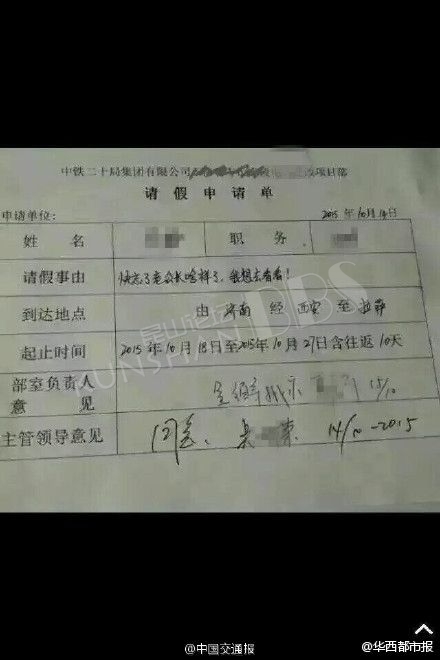 中铁二十局集团有限公司
改项目部
请假申请单
申请单位: 2015年10月14日
姓名 职务
请假事由 快忘了老公长啥样了,我想去看看!
到达地点 由 济南 经 西安 至 拉萨
起止时间 2015年10月18日至2015年10月27日含往返10天
部室负责人
意见 15/10
主管领导意见 同意. 吴 14/10-2015
昆山论坛
KUNSHAN BBS
@中国交通报
@华西都市报